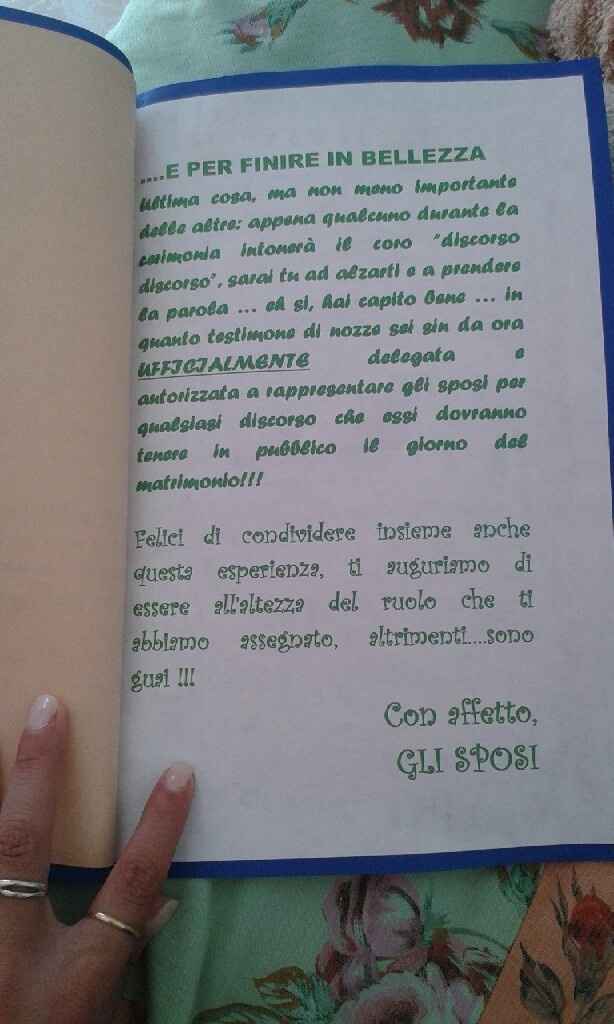 ....E PER FINIRE IN BELLEZZA
Ultima cosa, ma non meno importante
delle altre: appena qualcuno durante la
cerimonia intonerà il coro "discorso
discorso", sarai tu ad alzarti e a prendere
la parola ... eh si, hai capito bene ... in
quanto testimone di nozze sei sin da ora
UFFICIALMENTE delegata e
autorizzata a rappresentare gli sposi per
qualsiasi discorso che essi dovranno
tenere in pubblico il giorno del
matrimonio!!!
Felici di condividere insieme anche
questa esperienza, ti auguriamo di
essere all'altezza del ruolo che ti
abbiamo assegnato, altrimenti....sono
guai !!!
Con affetto,
GLI SPOSI